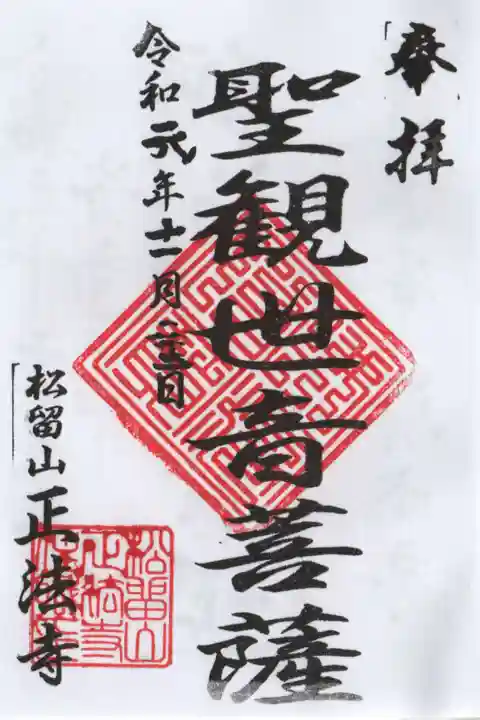 奉拝
聖観世音菩薩
令和元年十一月二十三日
松留山正法寺
松留山
正法寺